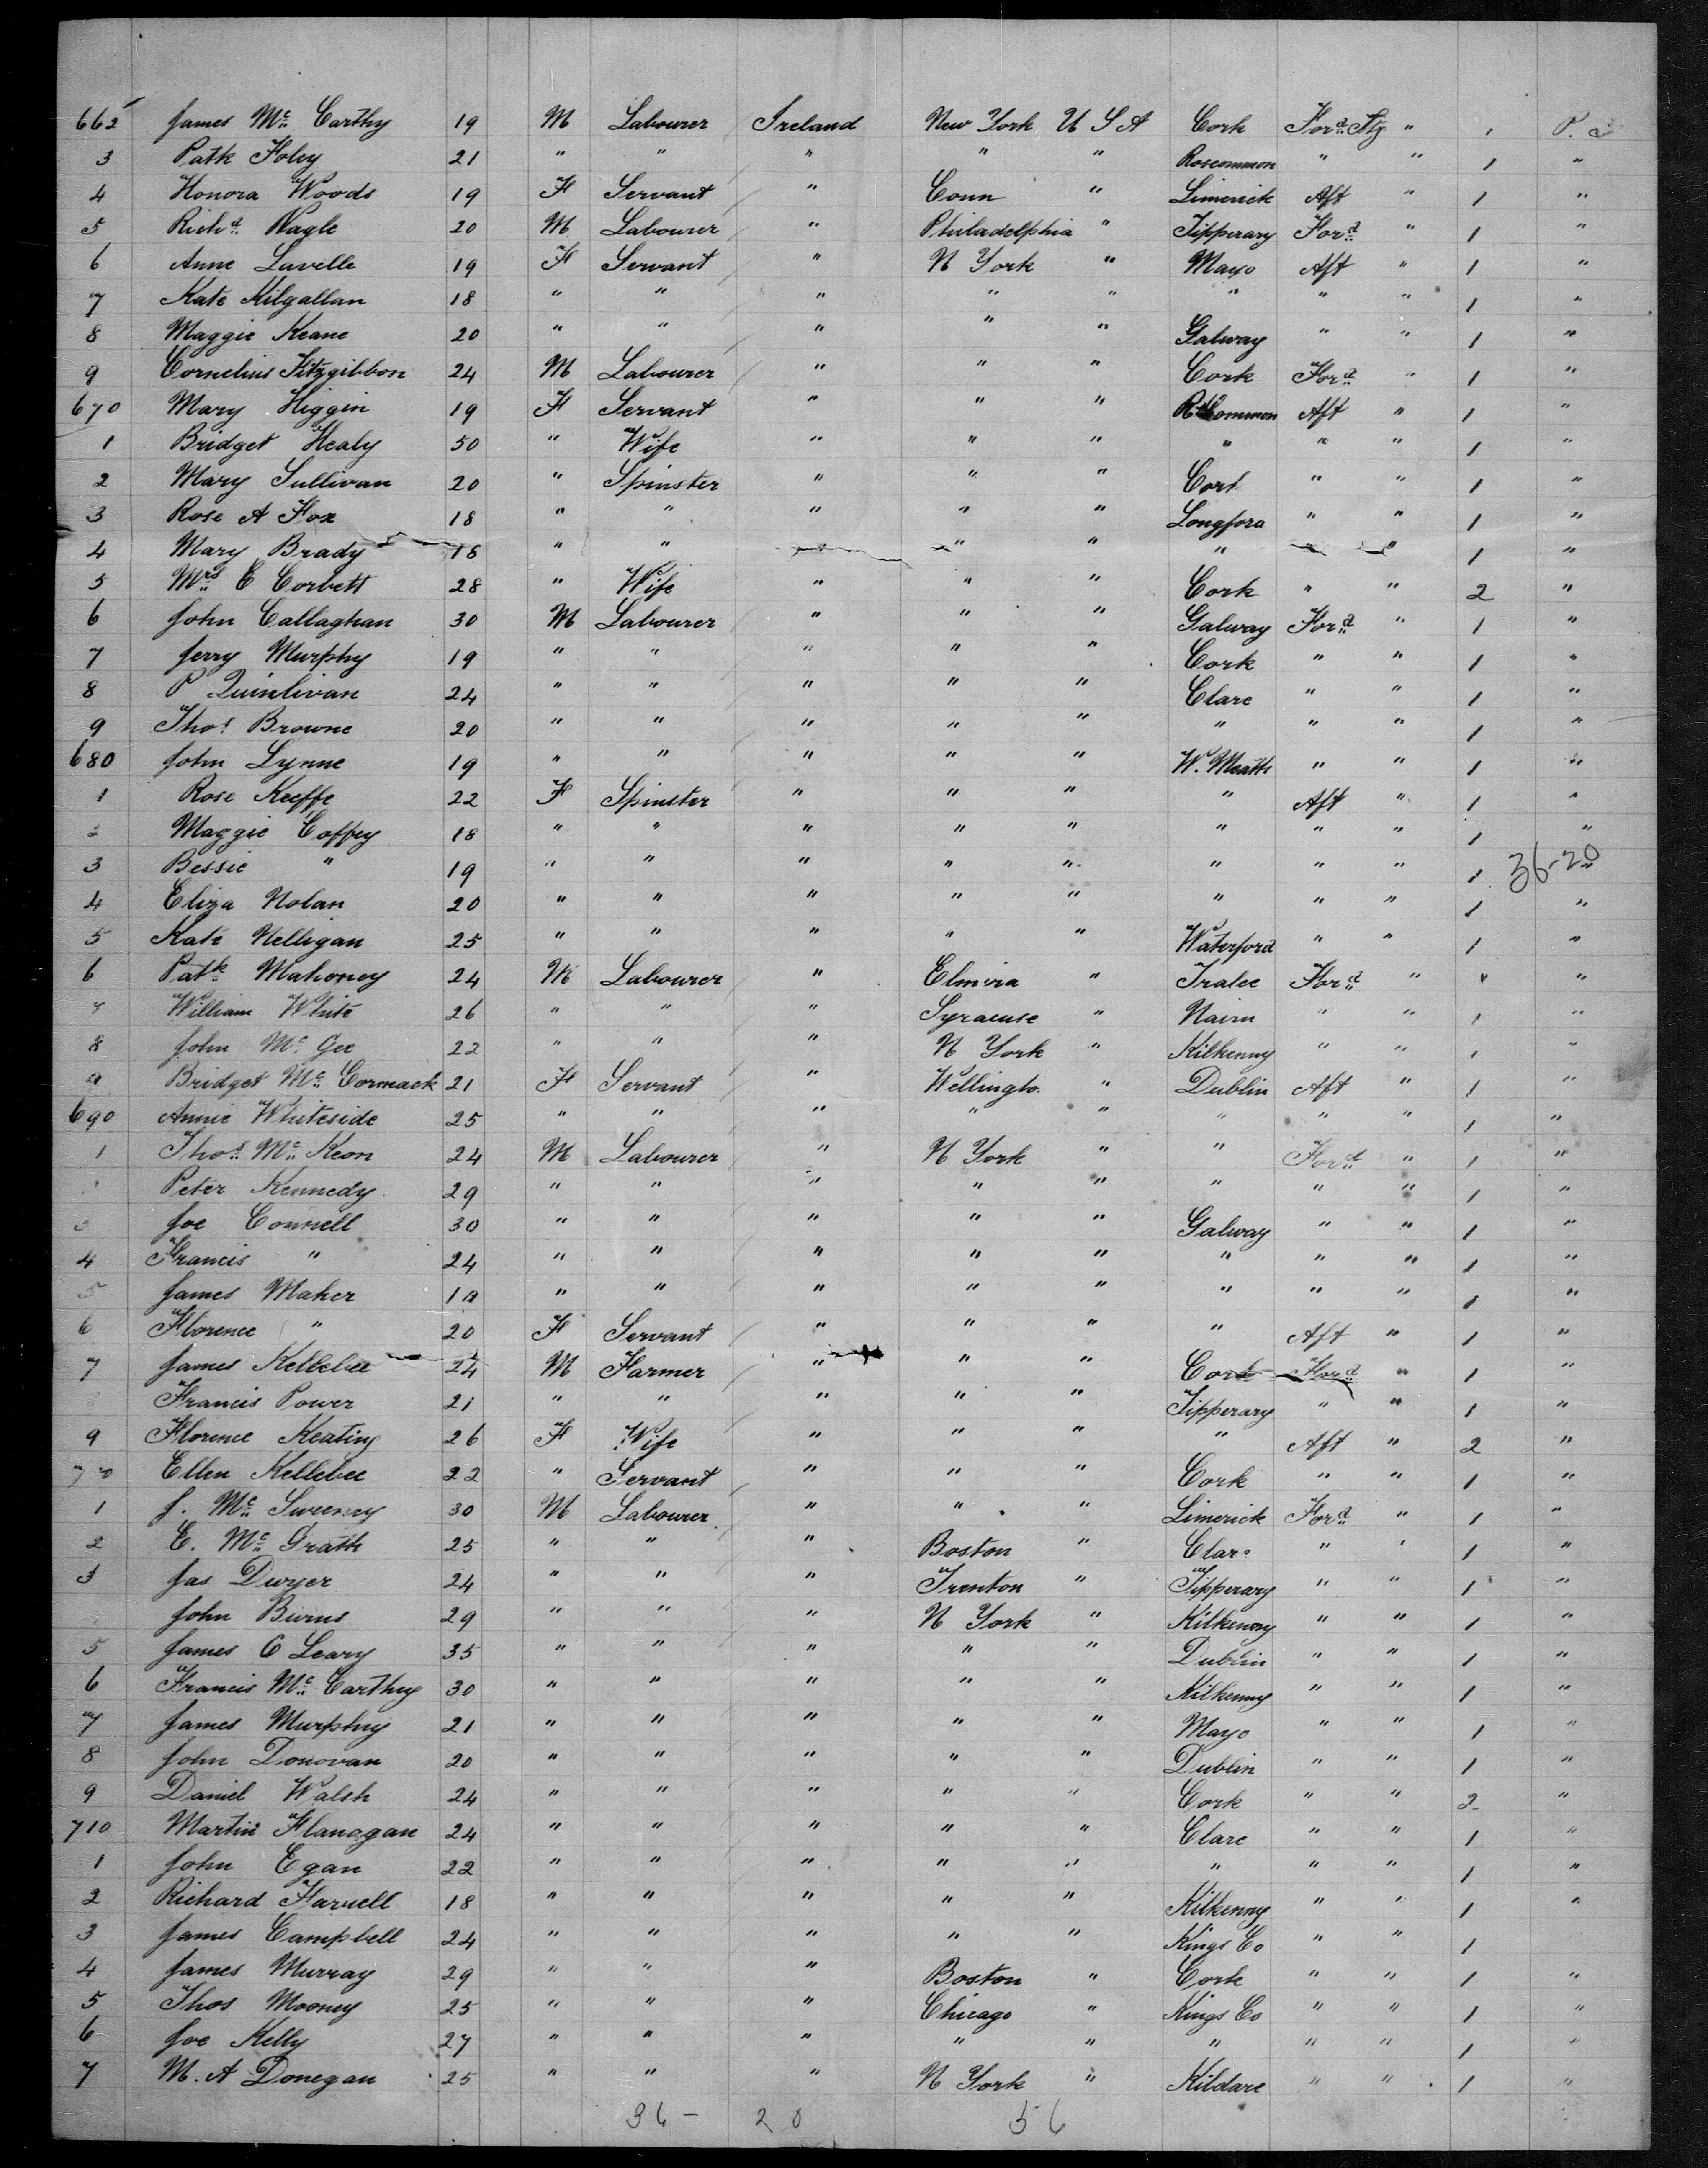 662 James Mc Carthy 19 M Labourer Ireland New York U S A Cork Ford Stg " 1 P.
3 Patk Foley 21 " " " " " Roscommon " " 1 "
4 Honora Woods 19 F Servant " Conn " Limerick Aft " 1 "
5 Richd Nagle 20 M Labourer " Philadelphia " Tipperary Ford " 1 "
6 Anne Lavelle 19 F Servant " N York " Mayo Aft " 1 "
7 Kate Kilgallan 18 " " " " " " " " 1 "
8 Maggie Keane 20 " " " " " Galway " " 1 "
9 Cornelius Fitzgibbon 24 M Labourer " " " Cork Ford " 1 "
670 Mary Higgin 19 F Servant " " " Aft " 1 "
1 Bridget Healy 50 " Wife " " " " " " 1 "
2 Mary Sullivan 20 " Spinster " " " Cork " " 1 "
3 Rose A Fox 18 " " " " " Longford " " 1 "
4 Mary Brady 18 " " " " " " " " 1 "
5 Mrs E Corbett 28 " Wife " " " Cork " " 2 "
6 John Callaghan 30 M Labourer " " " Galway Ford " 1 "
7 Jerry Murphy 19 " " " " " Cork " " 1 "
8 P Quinlivan 24 " " " " " Clare " " 1 "
9 Thos Browne 20 " " " " " " " " 1 "
680 John Lynne 19 " " " " " W. Meath " " 1 "
1 Rose Keeffe 22 F Spinster " " " " Aft " 1 "
2 Maggie Coffey 18 " " " " " " " " 1 "
3 Bessie " 19 " " " " " " " " 1 36-20 "
4 Eliza Nolan 20 " " " " " " " " 1 "
5 Kate Nelligan 25 " " " " " Waterford " " 1 "
6 Patk Mahoney 24 M Labourer " Elmira " Tralee Ford " "
7 William White 26 " " " Syracuse " Nairn " " 1 "
8 John Mc Gee 22 " " " N York " Kilkenny " " 1 "
9 Bridget Mc Cormack 21 F Servant " Wellingto. " Dublin Aft " 1 "
690 Annie Whiteside 25 " " " " " " " " 1 "
1 Thos Mc Keon 24 M Labourer " N York " " Ford " 1 "
Peter Kennedy 29 " " " " " " " " 1 "
3 Joe Connell 30 " " " " " Galway " " 1 "
4 Francis " 24 " " " " " " " " 1 "
5 James Maher " " " " " " " " 1 "
6 Florence " 20 F Servant " " " " Aft " 1 "
7 James Kellebee 24 M Farmer " " " Cork Ford " 1 "
Francis Power 21 " " " " " Tipperary " " 1 "
9 Florence Keating 26 F Wife " " " " Aft " 2 "
Ellen Kellebee 22 " Servant " " " Cork " " 1 "
1 J. Mc Sweeney 30 M Labourer " " " Limerick Ford " 1 "
2 E. Mc Grath 25 " " " Boston " Clare " " 1 "
3 Jas Dwyer 24 " " " Trenton " Tipperary " " 1 "
John Burns 29 " " " N York " Kilkenny " " 1 "
5 James O Leary 35 " " " " " Dublin " " 1 "
6 Francis Mc Carthy 30 " " " " " Kilkenny " " 1 "
7 James Murphy 21 " " " " " Mayo " " 1 "
8 John Donovan 20 " " " " " Dublin " " 1 "
9 Daniel Walsh 24 " " " " " Cork " " 2 "
710 Martin Flanagan 24 " " " " " Clare " " 1 "
1 John Egan 22 " " " " " " " " 1 "
2 Richard Farrell 18 " " " " " Kilkenny " " 1 "
3 James Campbell 24 " " " " " Kings Co " " 1
4 James Murray 29 " " " Boston " Cork " " 1 "
5 Thos Mooney 25 " " " Chicago " Kings Co " " 1 "
6 Joe Kelly 27 " " " " " " " " 1 "
7 M. A Donegan 25 " " " N York " Kildare " " 1 "
36 - 20 56